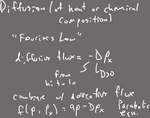 Diffusion (of heat or chemical
composition)
"Fourier's Law"
diffusive flux = -Dρₓ
from hi to lo
D>0
combine w/ advective flux
f(ρ, ρₓ) = qρ - Dρₓ Parabolic
eqn.